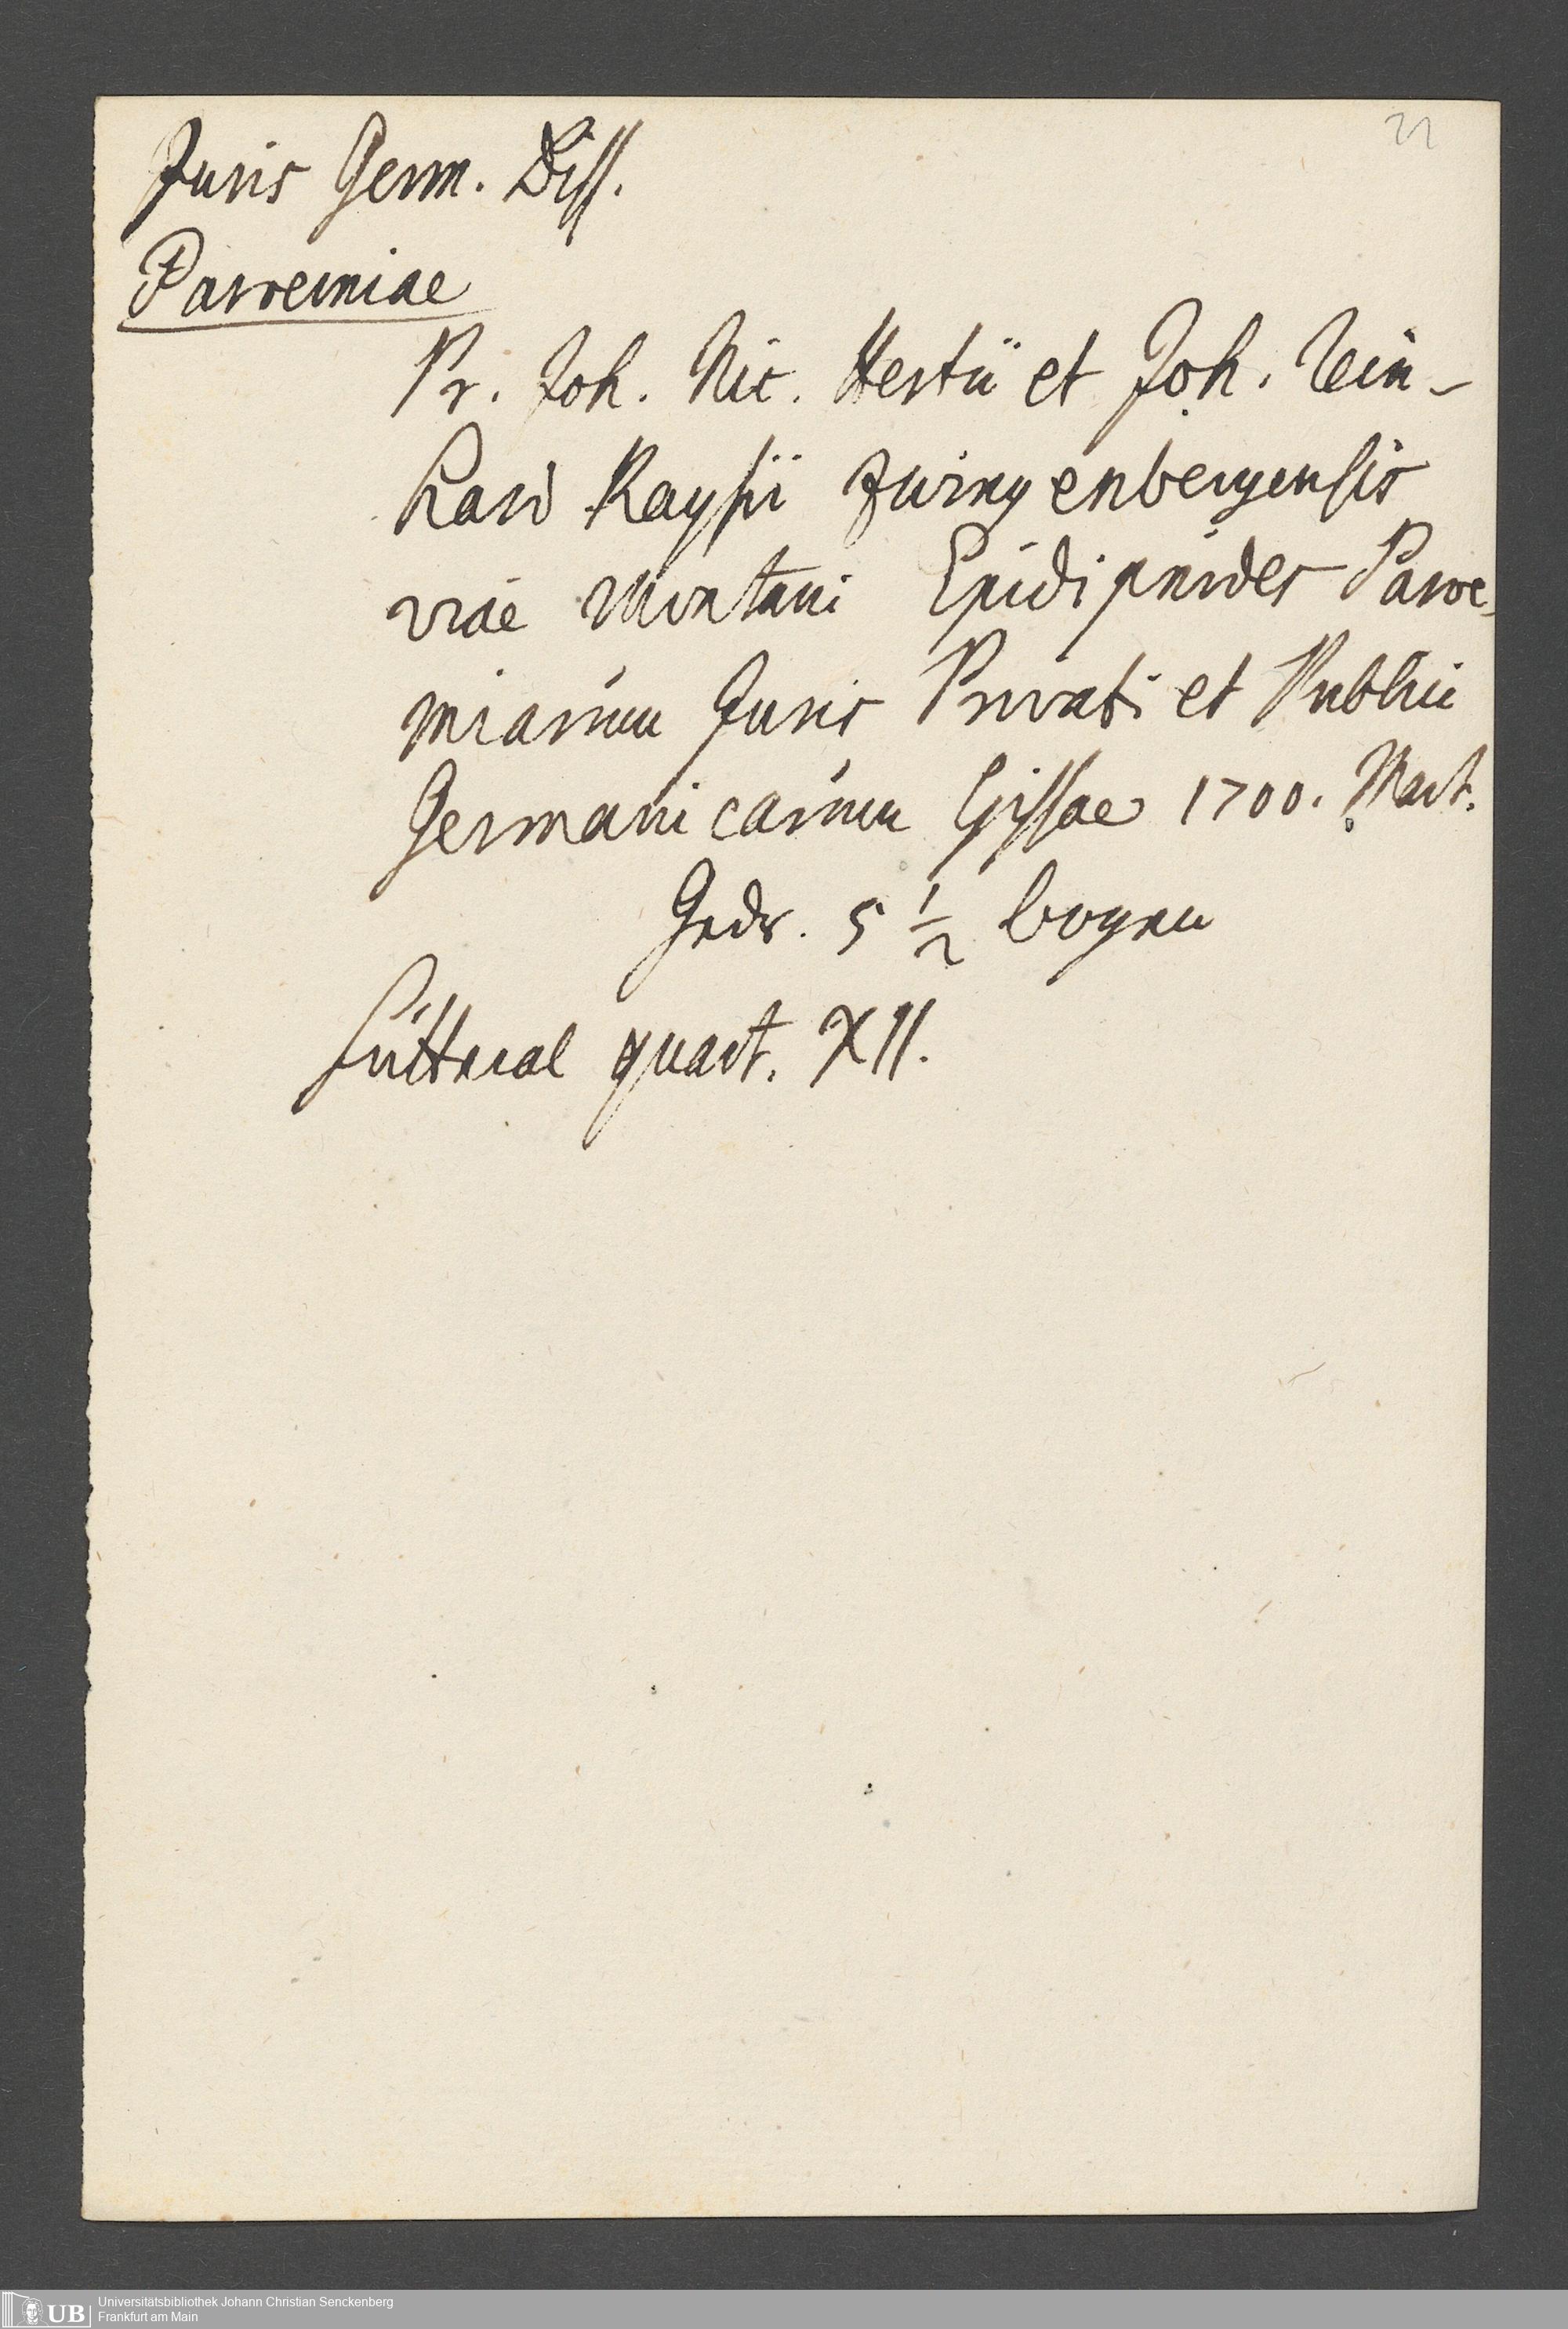 22
Juris Germ. Diss.
Paroemiae
Pr. Joh. Nic. Hertii et Joh. Rein-
hard Raysii Zwingenbergensis
viae Montani Epidipnides Paroe-
miarum Juris Privati et Publici
Germanicarum Gissae 1700. Mart.
Gedr. 5 1/2 bogen
quart. XII.
UB Universitätsbibliothek Johann Christian Senckenberg
Frankfurt am Main